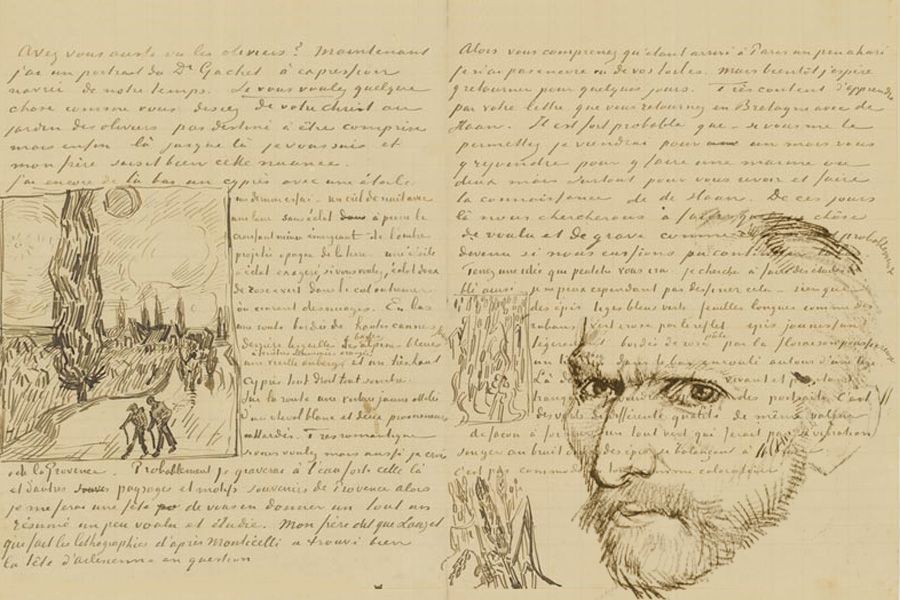 Avez vous aussi vu les oliviers? Maintenant
j'ai un portrait du Dr Gachet à expression
navrée de notre temps. Si vous voulez quelque
chose comme vous disiez de votre Christ au
jardin des oliviers pas destiné à être compris
mais enfin là jusque là je vous suis et
mon frère saisit bien cette nuance.
j'ai encore de là bas un cyprès avec une étoile
un dernier essai - un ciel de nuit avec
une lune sans éclat dans à peine le
croissant mince émergeant de l'ombre
projetée opaque de la terre - une étoile
à éclat exagéré si vous voulez, éclat doux
de rose et vert dans le ciel outremer
où courent des nuages. En bas
une route bordée de hautes cannes
derrière lesquelles les Alpines basses bleues
une vieille auberge et un très haut
cyprès tout droit tout sombre.
Sur la route une voiture jaune attelée
d'un cheval blanc et deux promeneurs
attardés. Très romantique
si vous voulez mais aussi je crois
de la Provence. Probablement je graverai à l'eau forte celle là
et d'autres paysages et motifs souvenirs de Provence alors
je me ferai une fête de vous en donner un tout un
résumé un peu voulu et étudié. Mon frère dit que Lauzet
qui fait les lithographies d'après Monticelli a trouvé bien
la tête d'arlésienne en question
Alors vous comprenez qu'étant arrivé à Paris un peu ahuri
je n'ai pas encore vu de vos toiles. Mais bientôt j'espère
y retourner pour quelques jours. Très content d'apprendre
par votre lettre que vous retournez en Bretagne avec de
Haan. Il est fort probable que - si vous me le
permettez je viendrai pour un mois vous
y rejoindre pour y faire une marine ou
deux mais surtout pour vous revoir et faire
la connaissance de de Haan. De ces jours
là nous chercherons à faire quelque chose
de voulu et de grave comme probablement
devenu si nous eussions pu continuer
Tenez une idée qui peut être vous ira je cherche à faire des études
blé ainsi je ne peux cependant pas dessiner cela - rien que
des épis tiges bleues vertes feuilles longues comme des
rubans vert et rose par le reflet épis jaunissant
légèrement bordés de rose pâle par la floraison poussiéreuse
un dans le bas enroulé autour d'une tige
Là de vivant et
des portraits c'est
des verts de différente qualité de même valeur
de façon à former un tout vert qui ferait par sa vibration
songer au bruit des épis se balançant à
c'est pas commode coloration